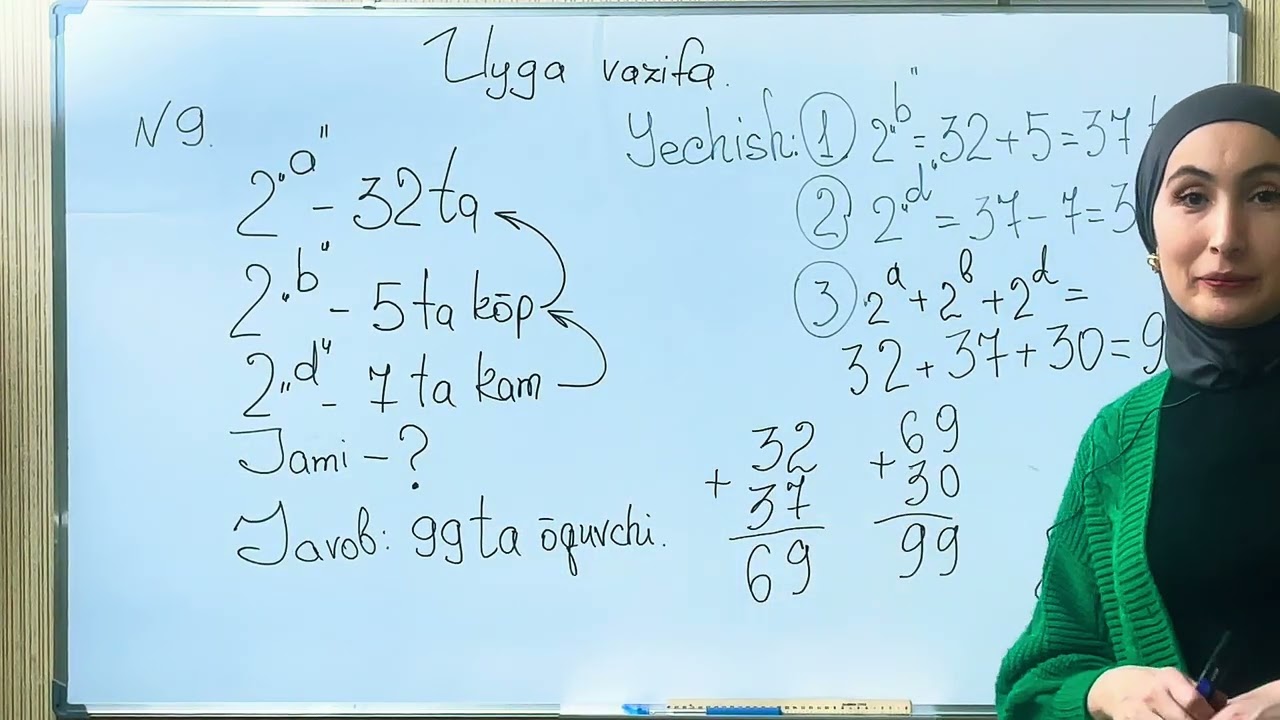 Uyga vazifa.
N 9.
2"a" - 32 ta
2"b" - 5 ta kōp
2"d" - 7 ta kam
Jami - ?
Javob: 99 ta ōquvchi.
Yechish: 1) 2"b" = 32 + 5 = 37
2) 2"d" = 37 - 7 = 3
3) 2a + 2b + 2d =
32 + 37 + 30 = 9
32
+
37
69
69
+
30
99